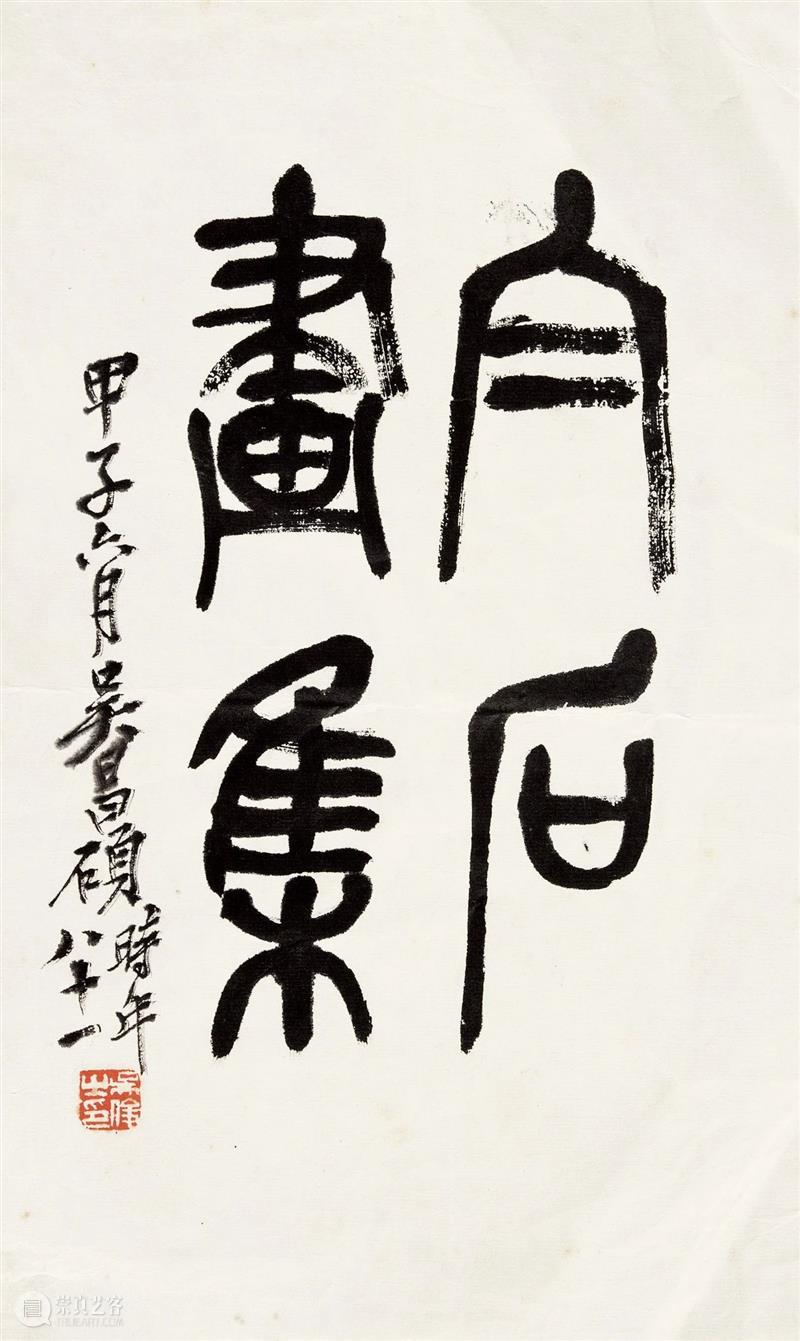 白石
畫集
甲子六月吳昌碩時年
八十一
吳俊
之印
崇真艺客
TRUEART.COM